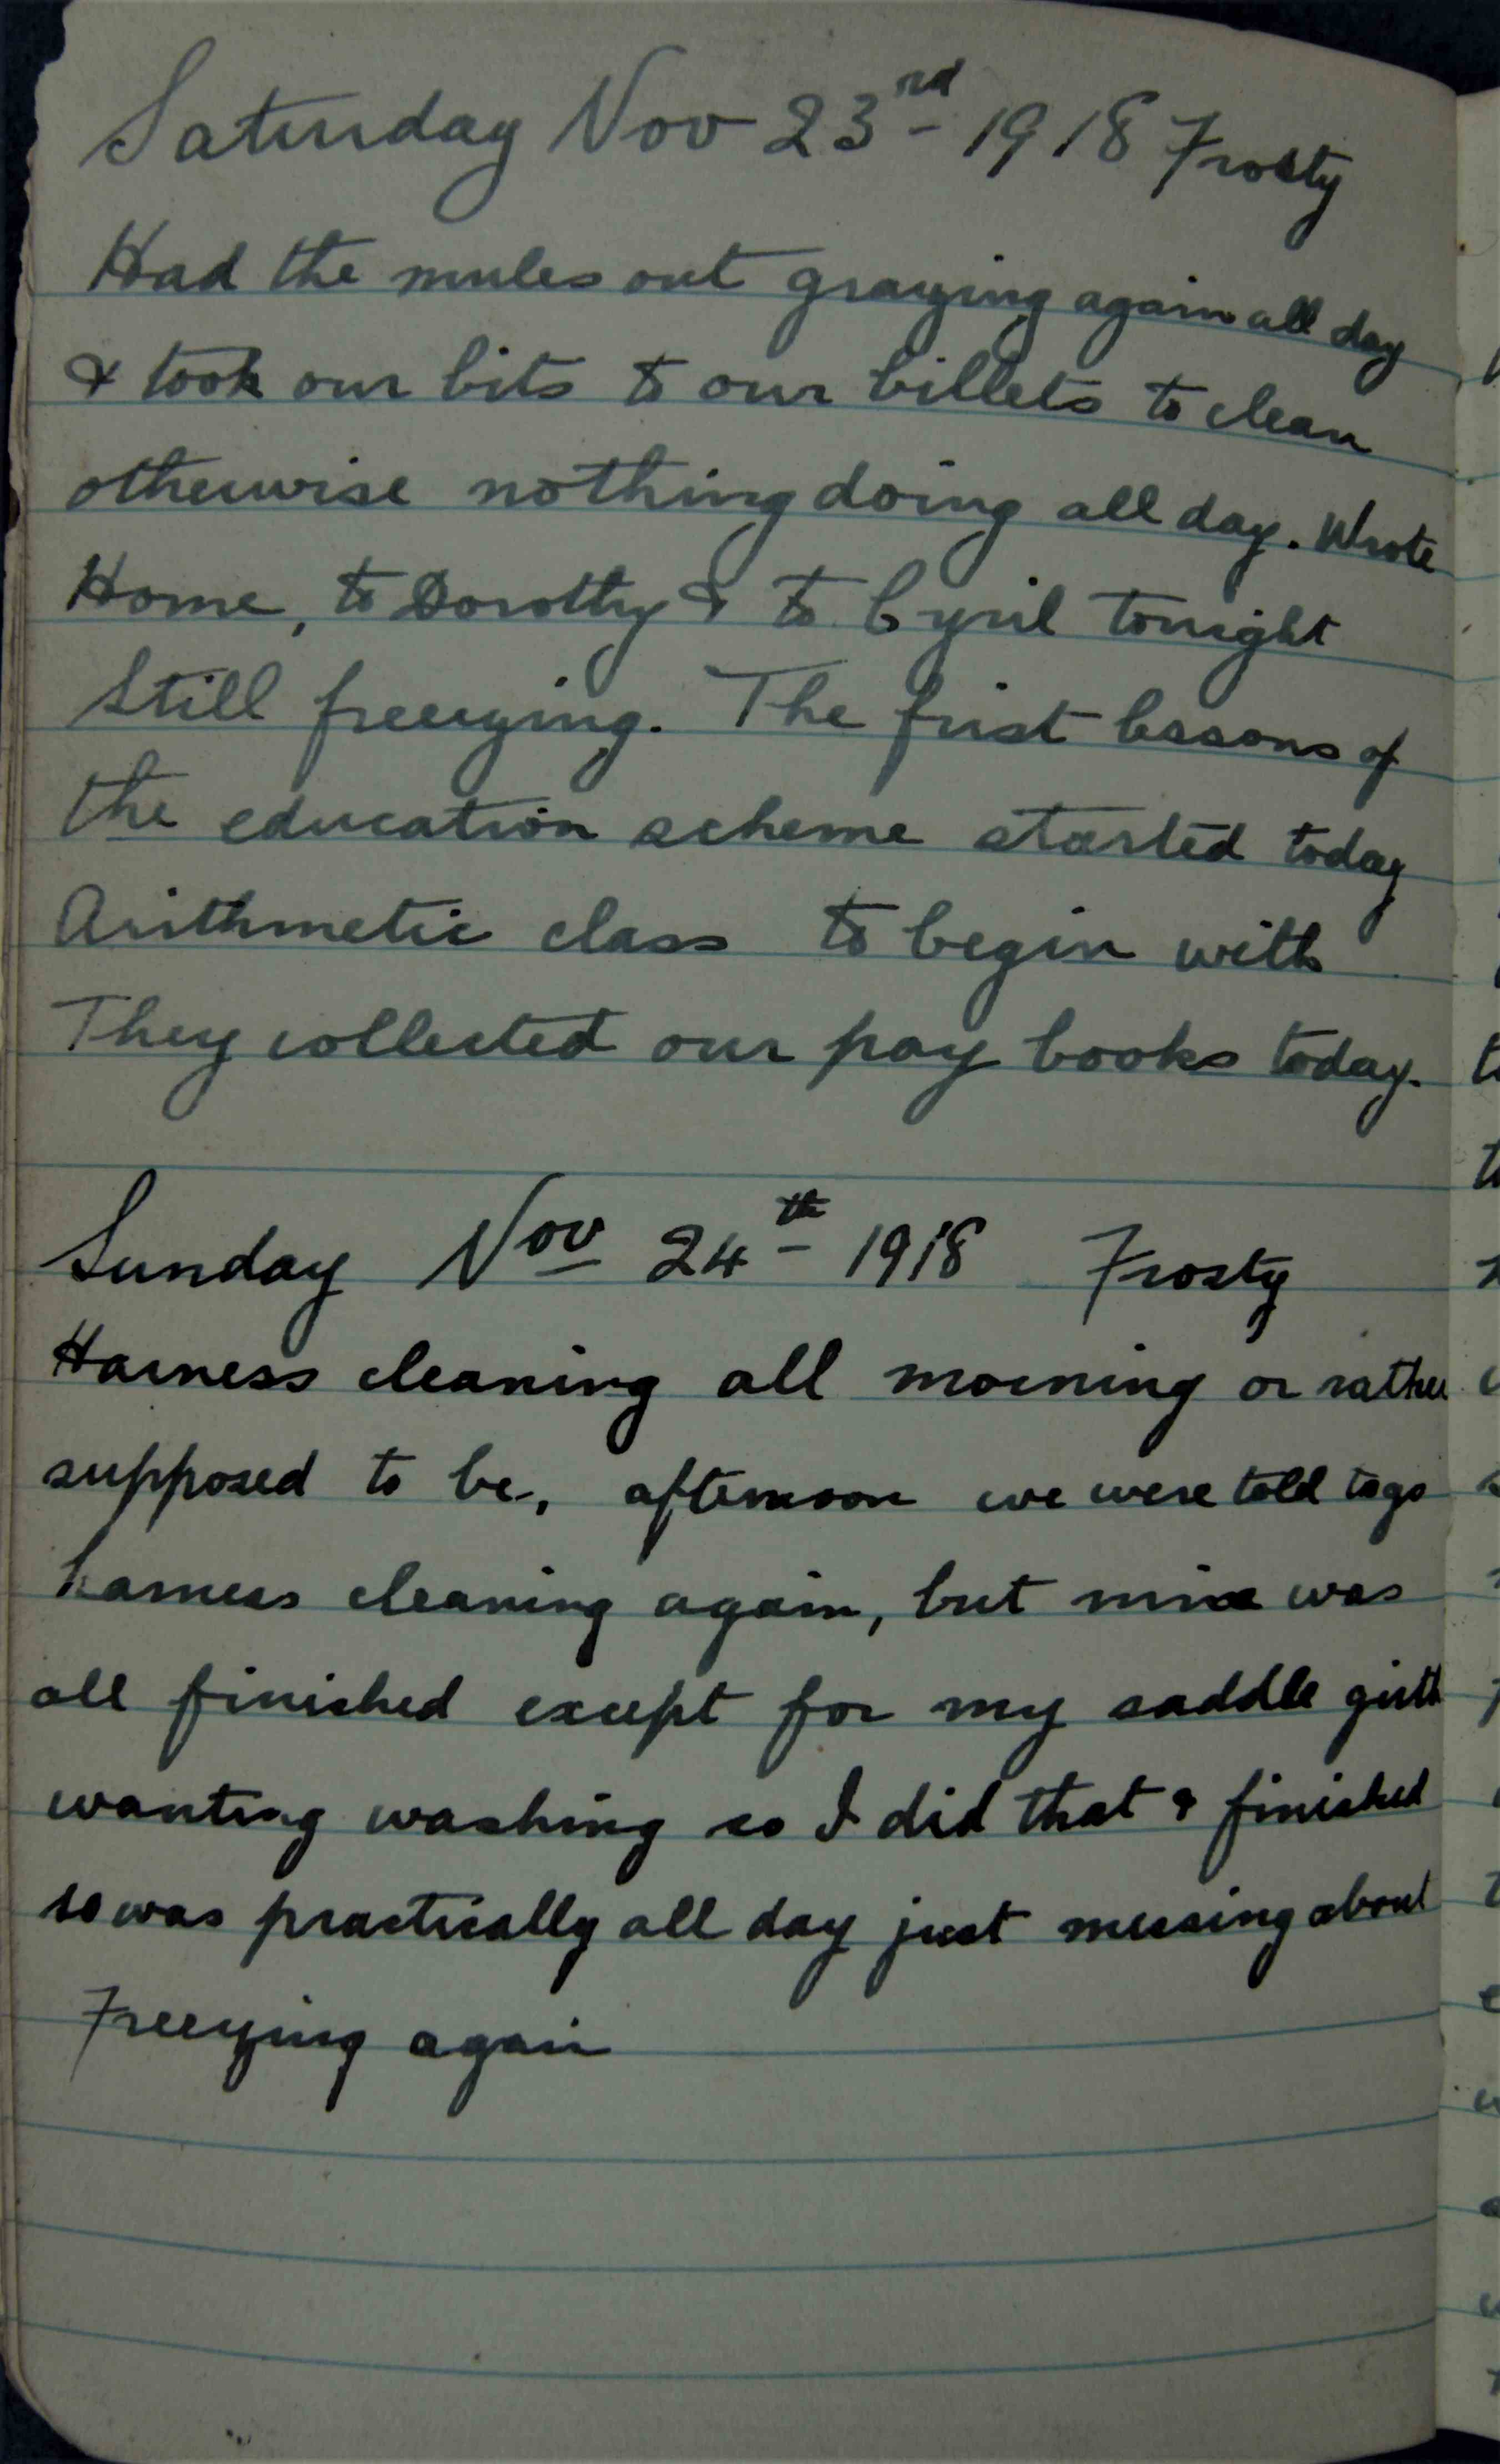 Saturday Nov 23rd 1918 Frosty
Had the mules out grazing again all day
& took our bits to our billets to clean
otherwise nothing doing all day. Wrote
Home, to Dorothy & to Cyril tonight
Still freezing. The first lessons of
the education scheme started today
Arithmetic class to begin with
They collected our pay books today.
Sunday Nov 24th 1918 Frosty
Harness cleaning all morning or rather
supposed to be, afternoon we were told to go
harness cleaning again, but mine was
all finished except for my saddle girth
wanting washing so I did that & finished
so was practically all day just messing about
Freezing again